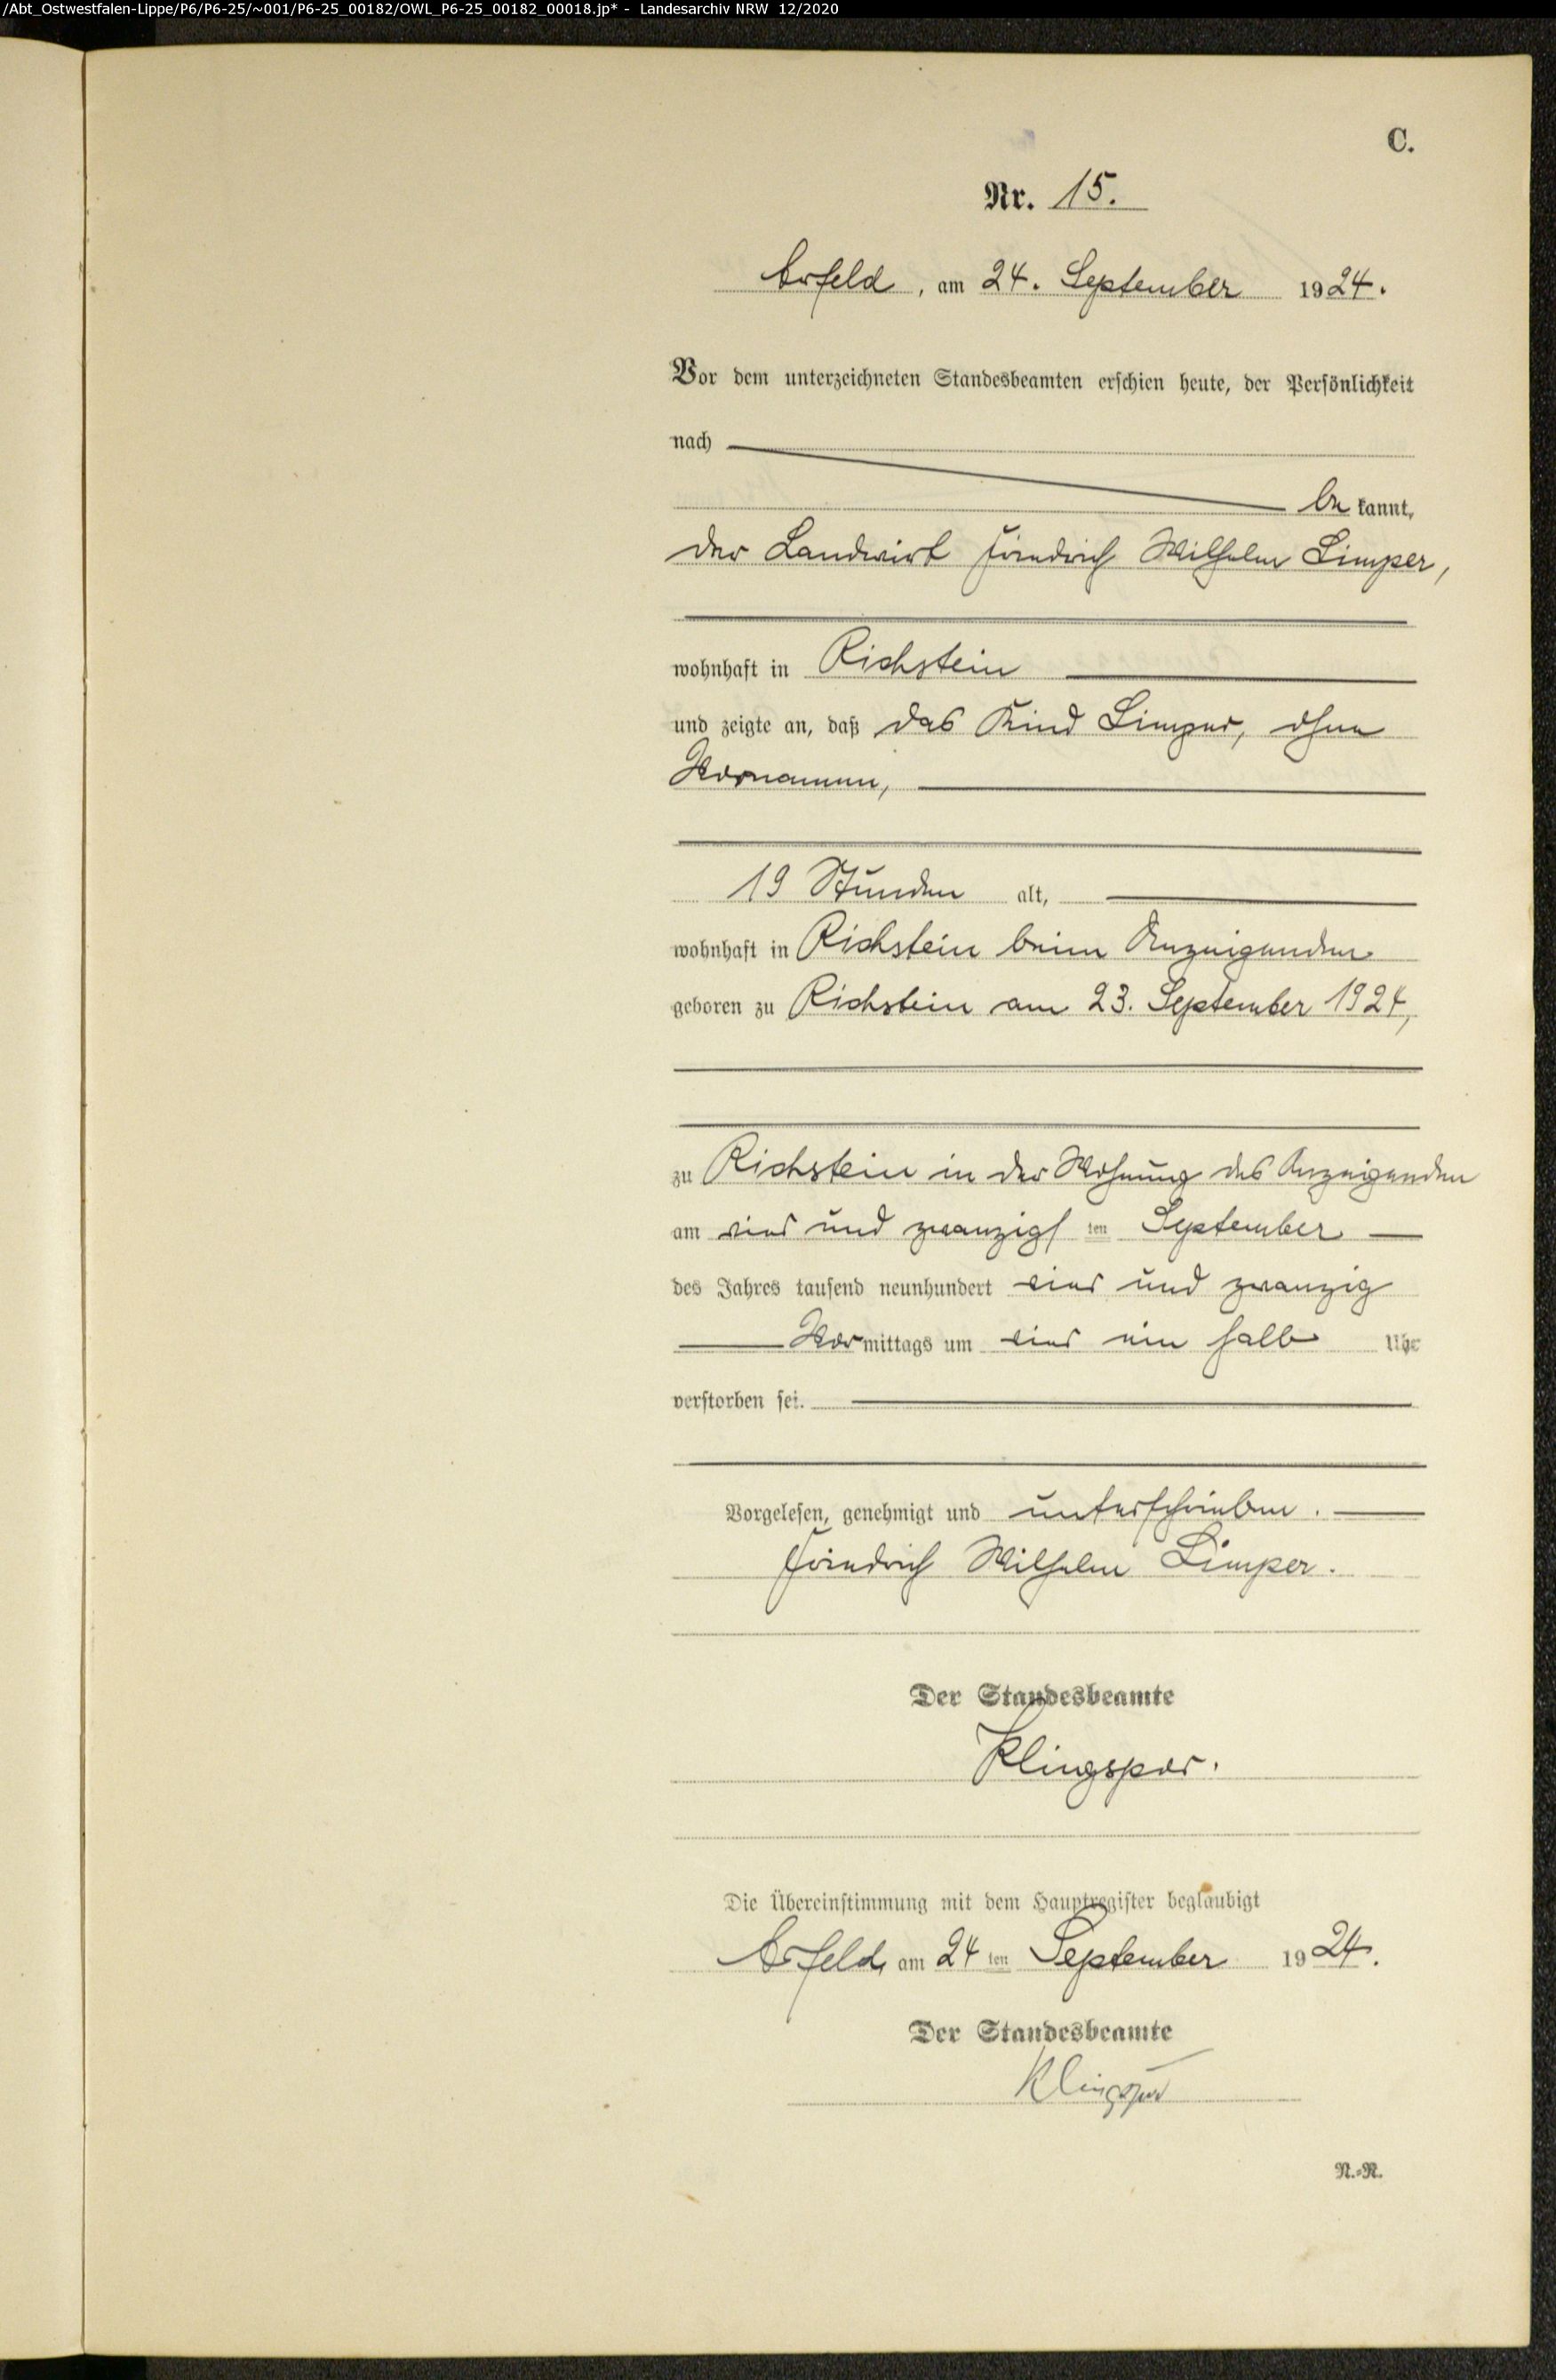 /Abt_Ostwestfalen-Lippe/P6/P6-25/~001/P6-25_00182/OWL_P6-25_00182_00018.jp* - Landesarchiv NRW 12/2020
C.
Nr. 15.
Arfeld, am 24. September 1924.
Vor dem unterzeichneten Standesbeamten erschien heute, der Persönlichkeit
nach
bekannt,
der Landwirt Friedrich Wilhelm Limper,
wohnhaft in Richstein
und zeigte an, daß das Kind Limper, ohne
Vornamen,
19 Stunden alt,
wohnhaft in Richstein beim Anzeigenden
geboren zu Richstein am 23. September 1924,
zu Richstein in der Wohnung des Anzeigenden
am vier und zwanzigsten September
des Jahres tausend neunhundert vier und zwanzig
Vormittags um vier ein halb Uhr
verstorben sei.
Vorgelesen, genehmigt und unterschrieben.
Friedrich Wilhelm Limper.
Der Standesbeamte
Klingspor.
Die Übereinstimmung mit dem Hauptregister beglaubigt
Arfeld, am 24ten September 1924.
Der Standesbeamte
Klingspor
N.=R.